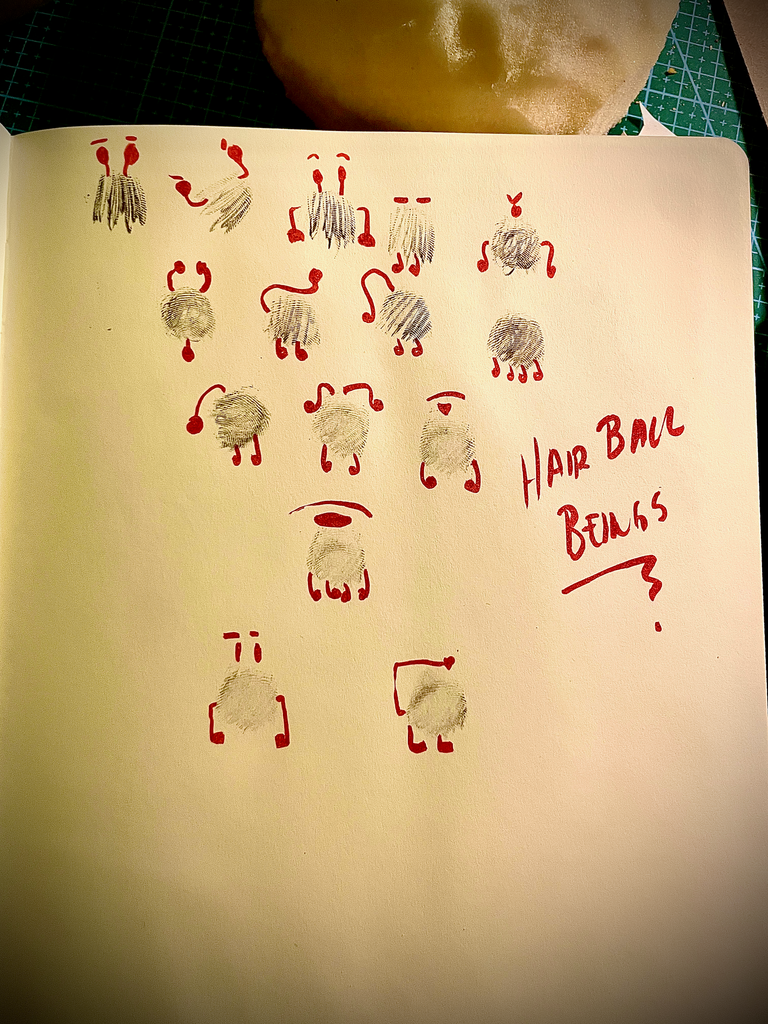 HAIR BALL
BEINGS
?